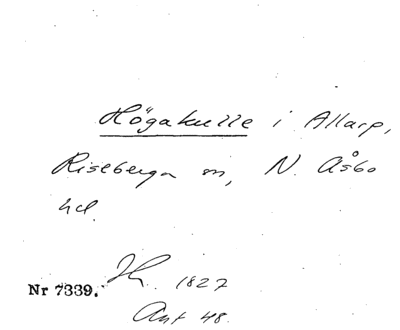 Högakulle i Allarp,
Riseberga sn, N. Åsbo
hd.
1827
Nr 7339.
Ant 48.